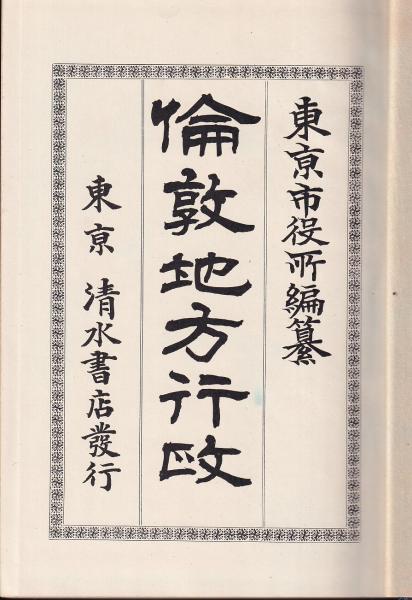 東亰市役所編纂
倫敦地方行政
東亰 清水書店發行